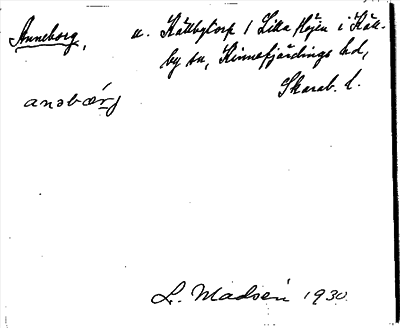 Anneborg, u. Källbytorp 1 Lilla Höjen i Käll-
by sn, Kinnefjärdings hd,
Skarab. l.
anəbærj
L. Madsén 1930